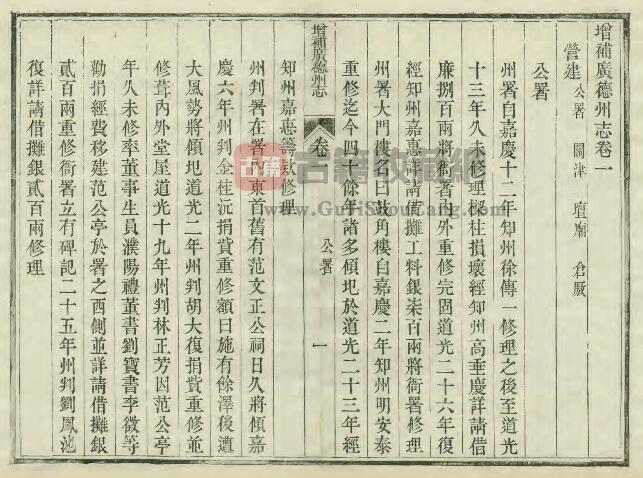 增補廣德州志卷一
營建 公署 關津 壇廟 倉廒
公署
州署自嘉慶十二年知州徐傳一修理之後至道光
十三年久未修理椽柱損壞經知州高垂慶詳請借
廉捌百兩將衙署內外重修完固道光二十六年復
經知州嘉惠詳請借攤工料銀柒百兩將衙署修理
州署大門樓名曰鼓角樓自嘉慶二年知州明安泰
重修迄今四十餘年諸多傾圮於道光二十三年經
增補廣德州志 卷一 公署 一
知州嘉惠籌欵修理
州判署在署內東首舊有范文正公祠日久將傾嘉
慶六年州判金桂沅捐貲重修額曰施有餘澤後遭
大風勢將傾圮道光二年州判胡大復捐貲重修並
修葺內外堂屋道光十九年州判林正芳因范公亭
年久未修率董事生員濮陽禮董書劉寶書李徵等
勸捐經費移建范公亭於署之西側並詳請借攤銀
貳百兩重修衙署立有碑記二十五年州判劉鳳池
復詳請借攤銀貳百兩修理
古籍
古籍收藏網
www.GuJiShouCang.com